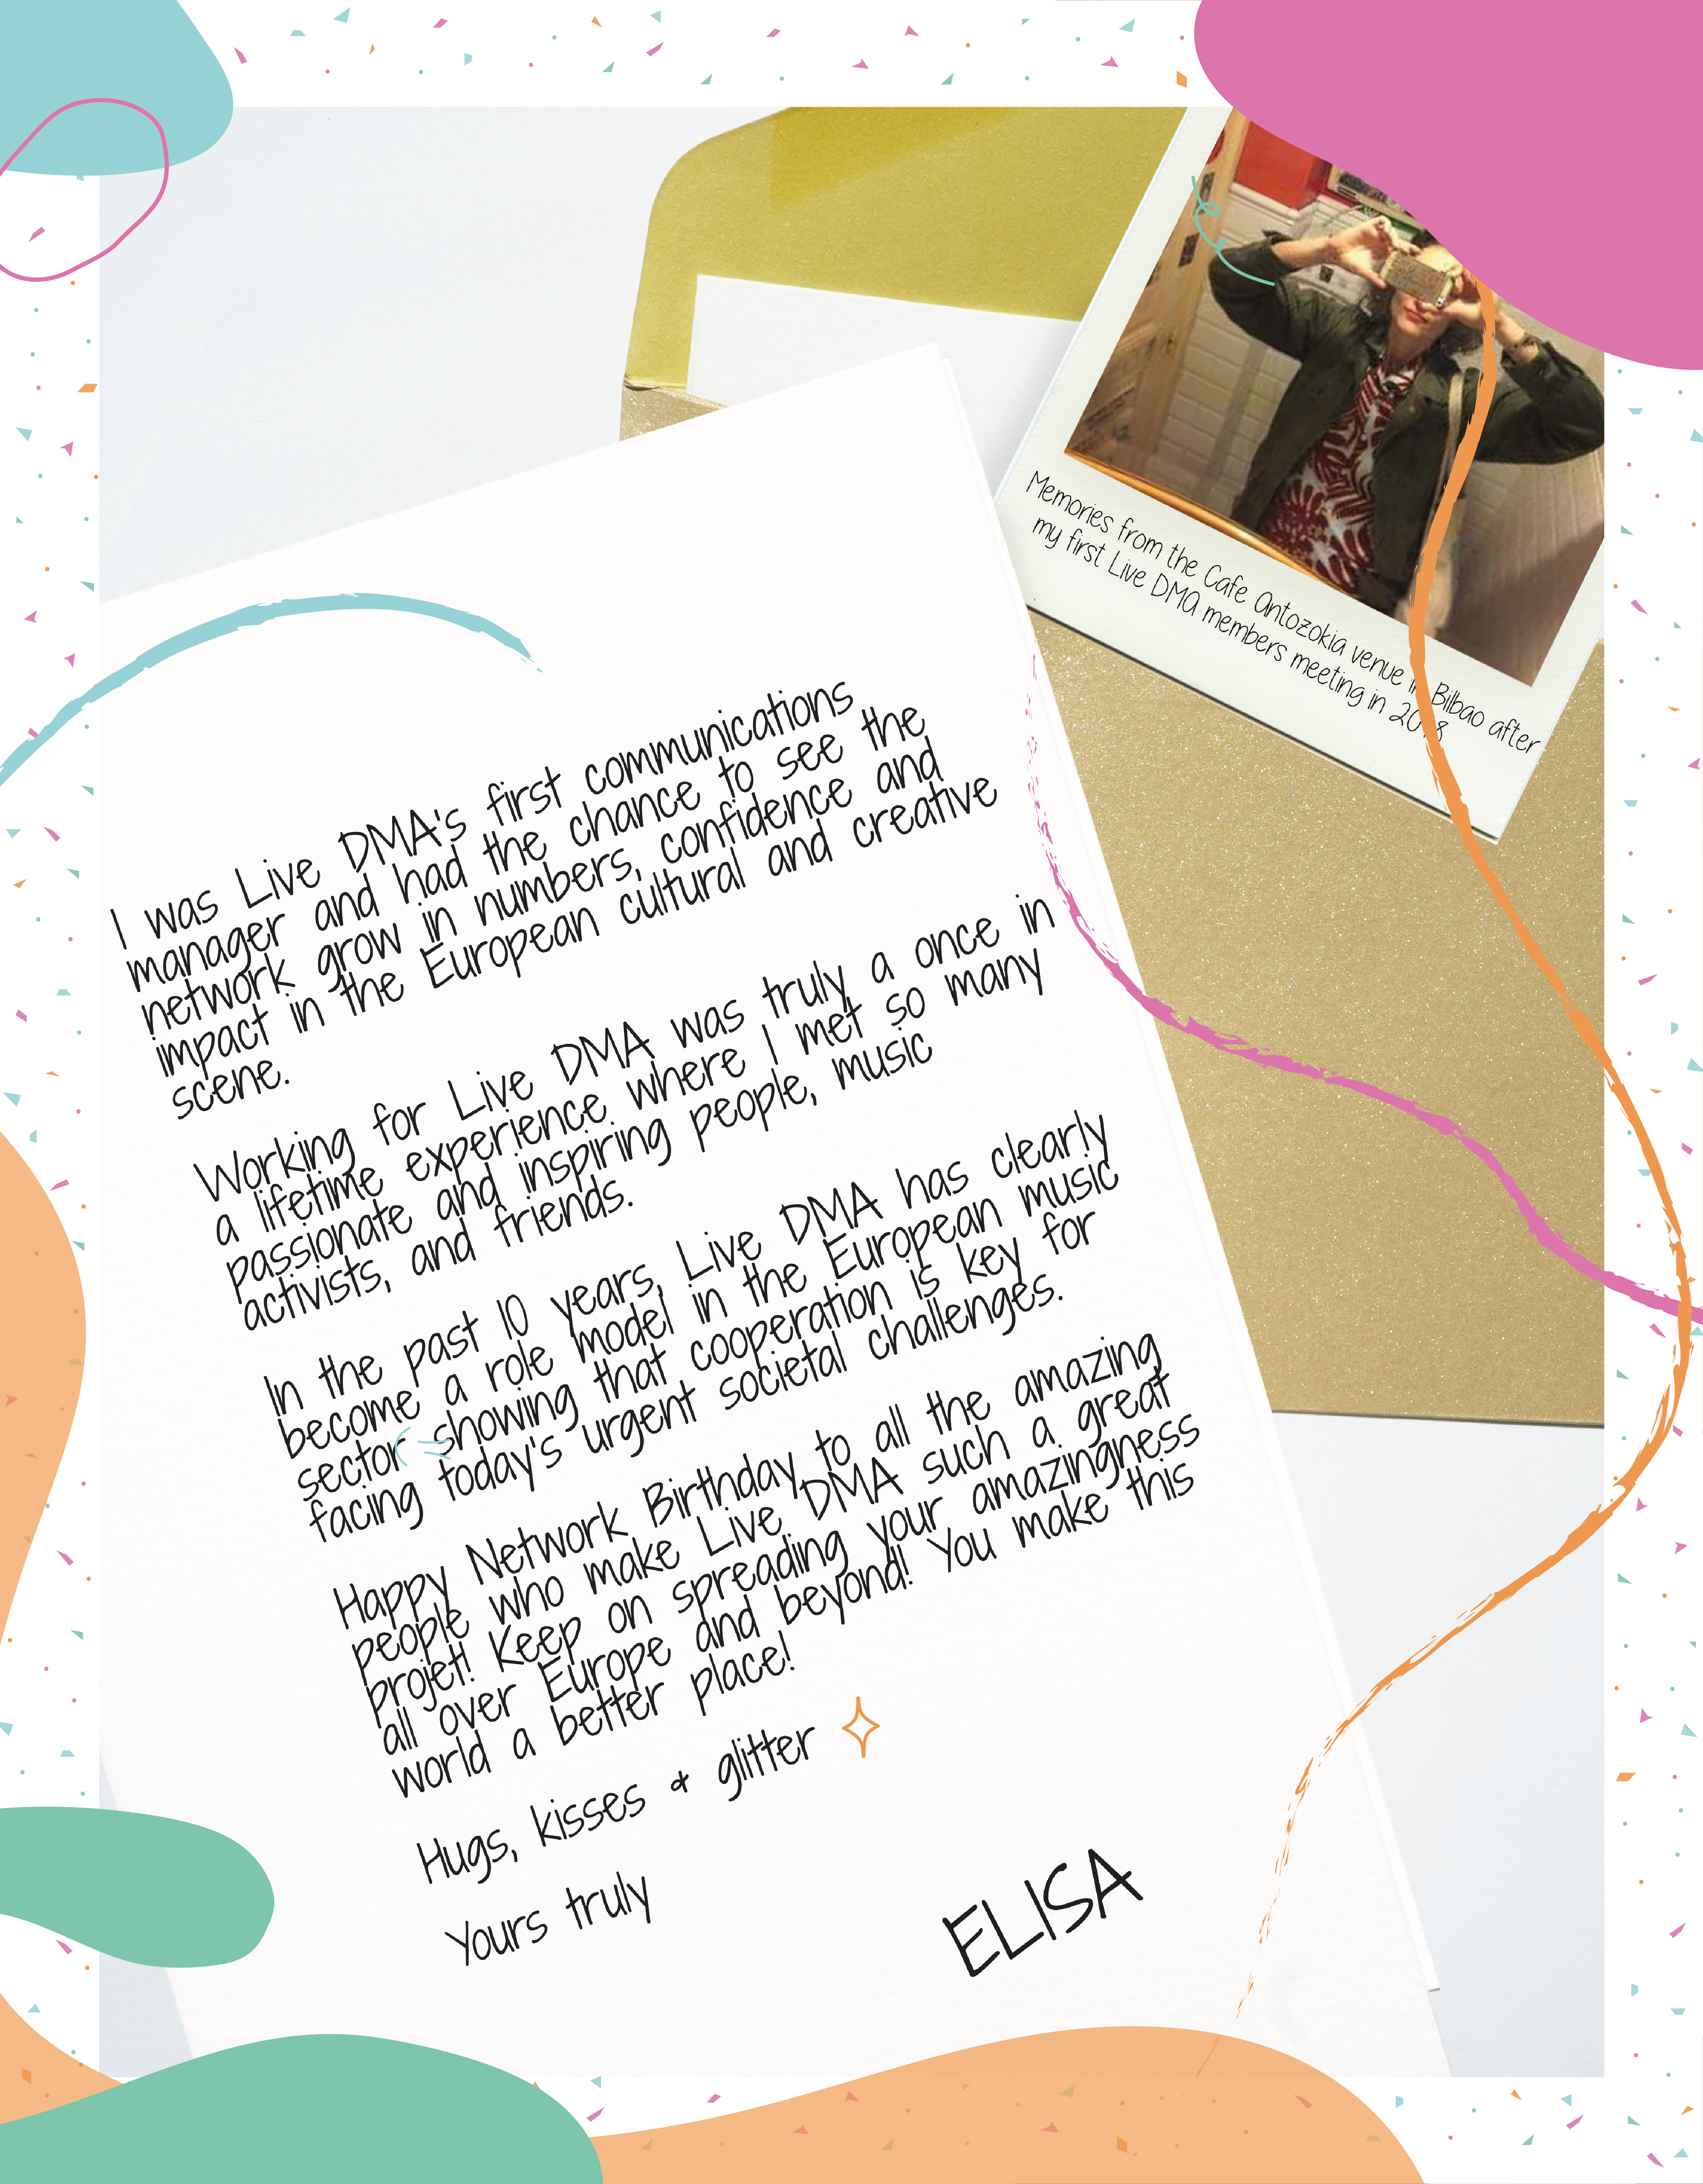 Memories from the Cafe Antozokia venue in Bilbao after
my first Live DMA members meeting in 2018
I was Live DMA's first communications
manager and had the chance to see the
network grow in numbers, confidence and
impact in the European cultural and creative
scene.
Working for Live DMA was truly a once in
a lifetime experience where I met so many
passionate and inspiring people, music
activists, and friends.
In the past 10 years, Live DMA has clearly
become a role model in the European music
sector showing that cooperation is key for
facing today's urgent societal challenges.
Happy Network Birthday to all the amazing
people who make Live DMA such a great
projet! Keep on spreading your amazingness
all over Europe and beyond! You make this
world a better place!
Hugs, kisses & glitter
Yours truly
ELISA